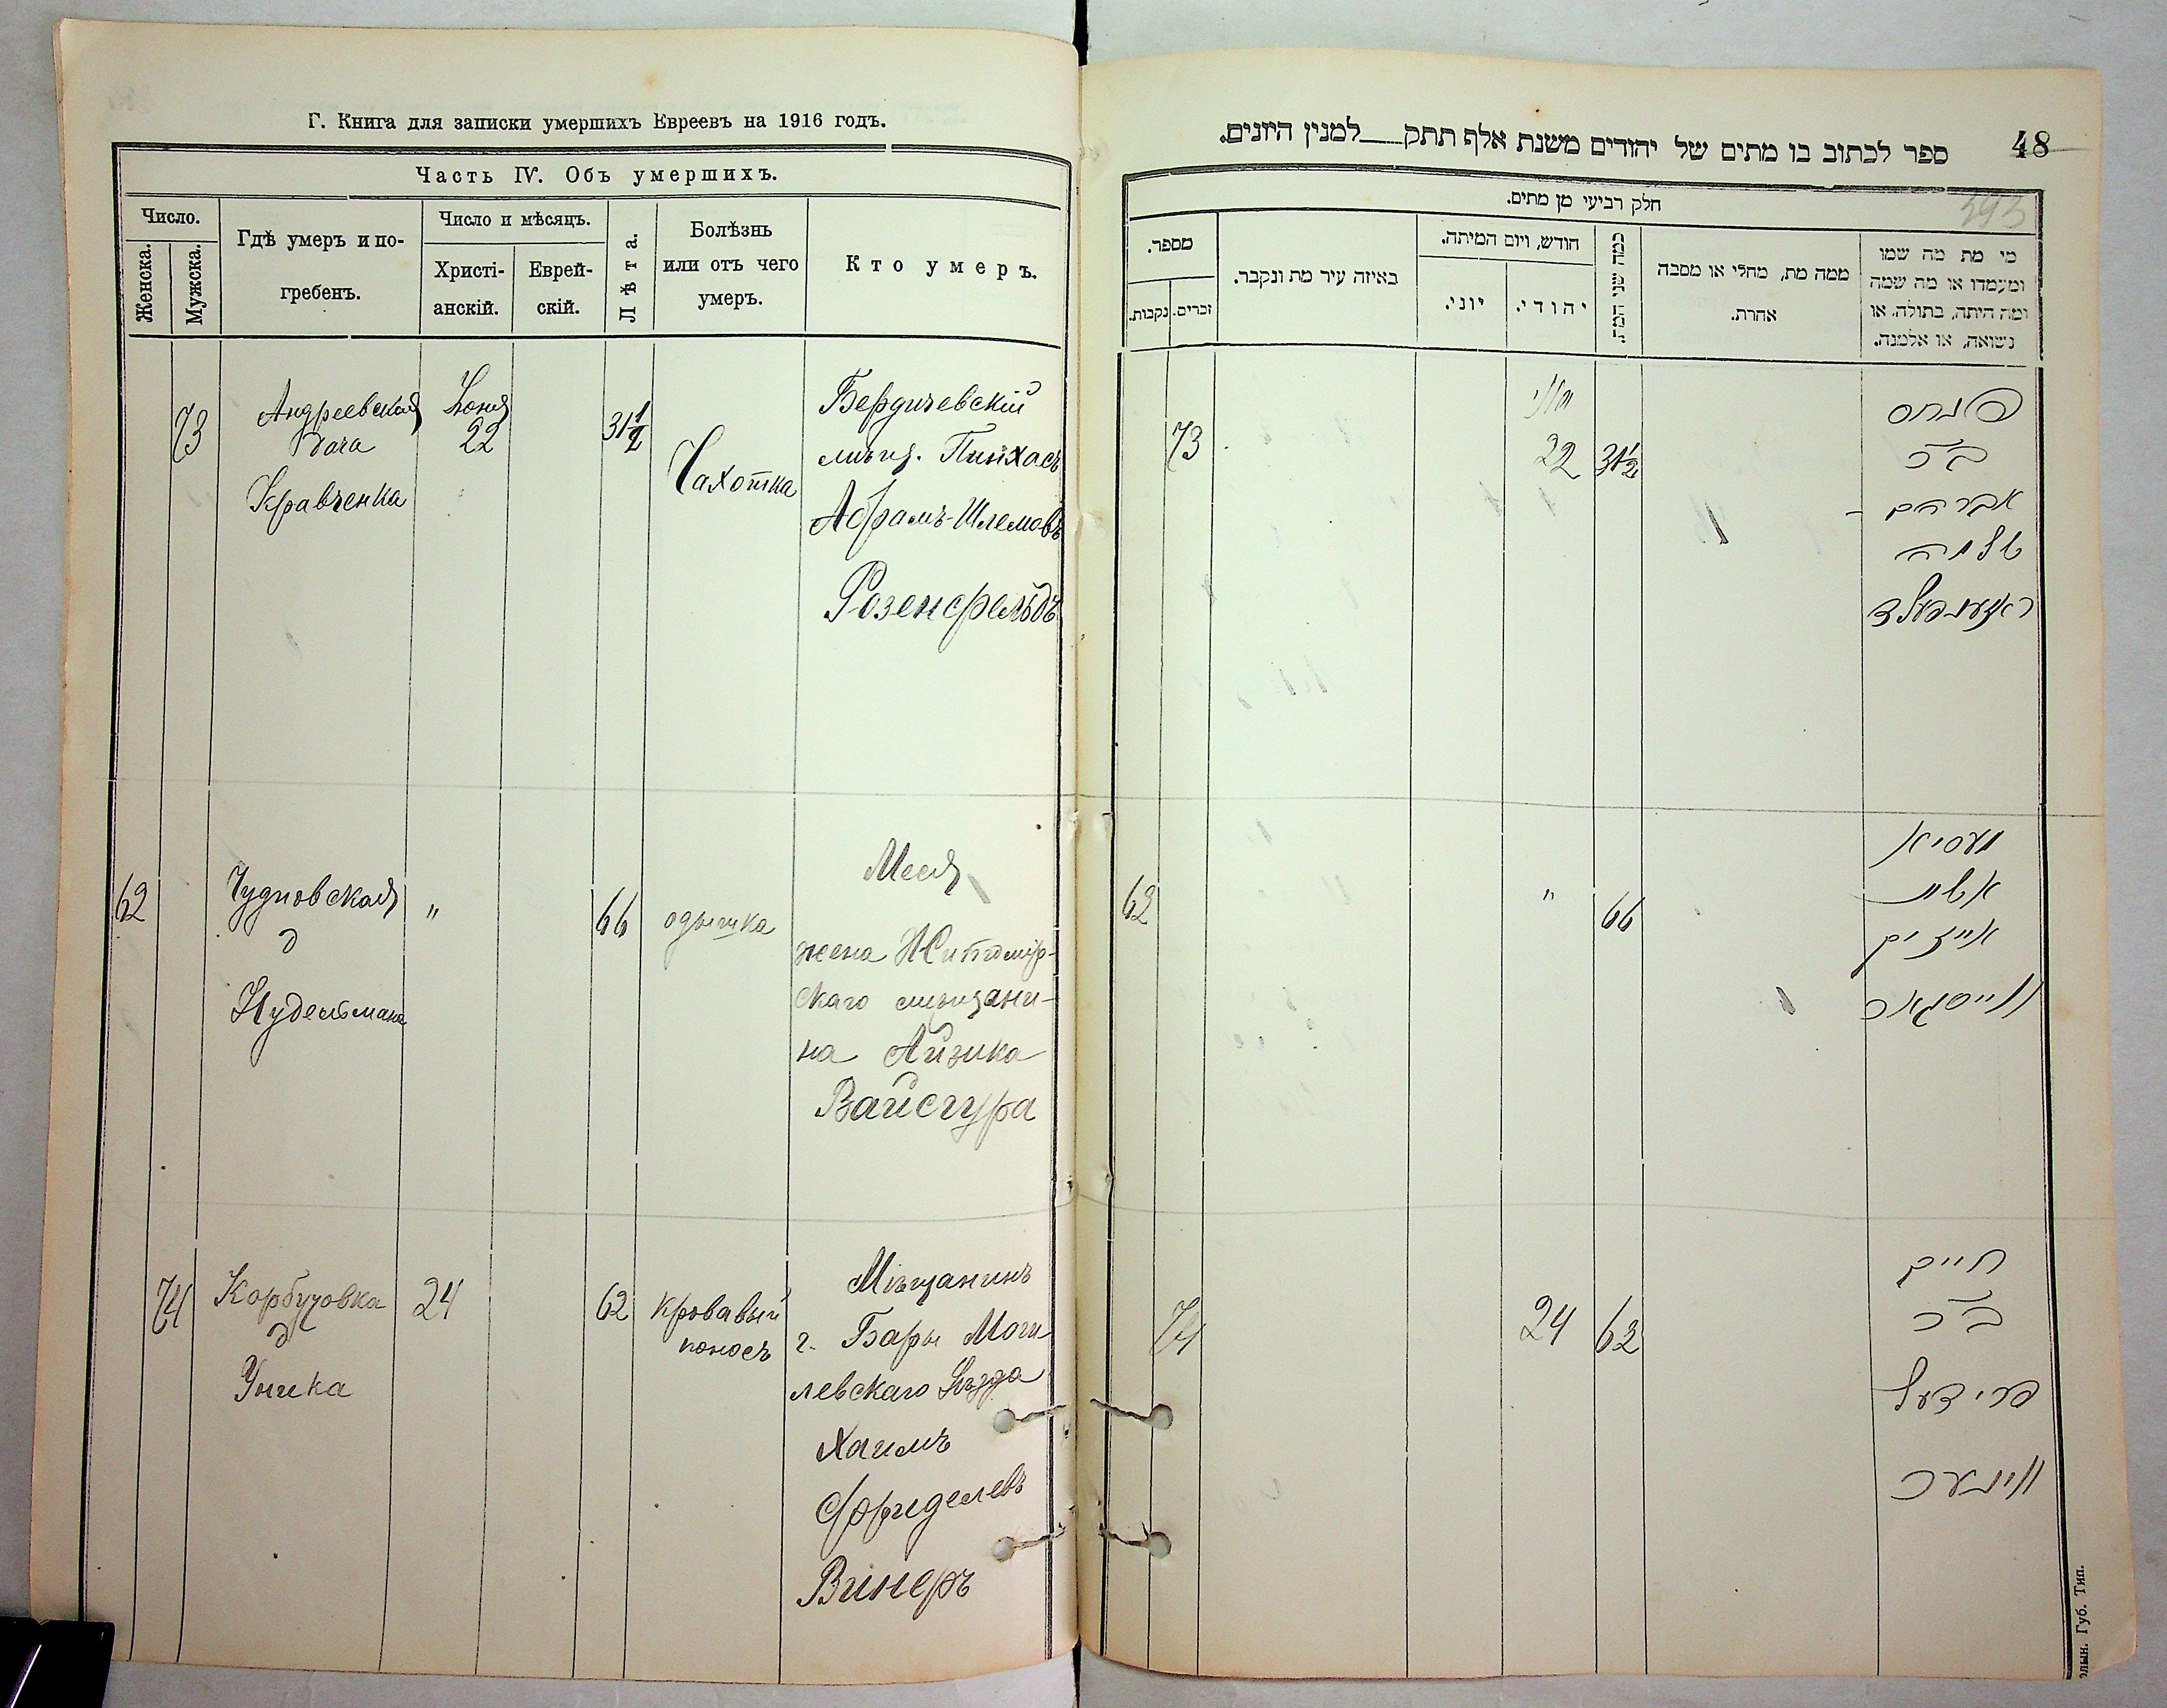 Г. Книга для записки умершихъ Евреевъ на 1916 годъ.
Часть IV. Объ умершихъ.
Число.
Женска.
Мужска.
Гдѣ умеръ и по-
гребенъ.
Число и мѣсяцъ.
Христі-
анскій.
Еврей-
скій.
Лѣта.
Болѣзнь
или отъ чего
умеръ.
Кто умеръ.
73
Андреевская
дача
Кравченка
Іюня
22
31 1/2
Чахотка
Бердичевскій
мѣщ. Пинхасъ
Абрамъ-Шлемовъ
Розенфельдъ
62
Чудновская
д
Нудельмана
"
66
одышка
Меся
жена Житомір-
скаго мѣщани-
на Айзика
Вайсгура
74
Корбутовка
д
Уника
24
62
кровавый
поносъ
Мѣщанинъ
г. Бары Моги-
левскаго уѣзда
Хаимъ
Фриделевъ
Винеръ
48
ספר לכתוב בו מתים של יהודים משנת אלף תתק למנין היונים.
393
חלק רביעי מן מתים.
מספר.
זכרים.
נקבות.
באיזה עיר מת ונקבר.
חודש, ויום המיתה.
יוני.
יהודי.
כמה שני המת.
ממה מת, מחלי או מסבה
אהרת.
מי מת מה שמו
ומעמדו או מה שמה
ומה היתה, בתולה, או
נשואה, או אלמנה.
73
יוני
22
31 1/2
פנחס
ב"ר
אברהם -
שלמה
ראזענפעלד
62
"
66
מעסיא
אשת
אייזיק
ווייסגאר
74
24
62
חיים
ב"ר
פרידעל
ווינער
Губ. Тип.